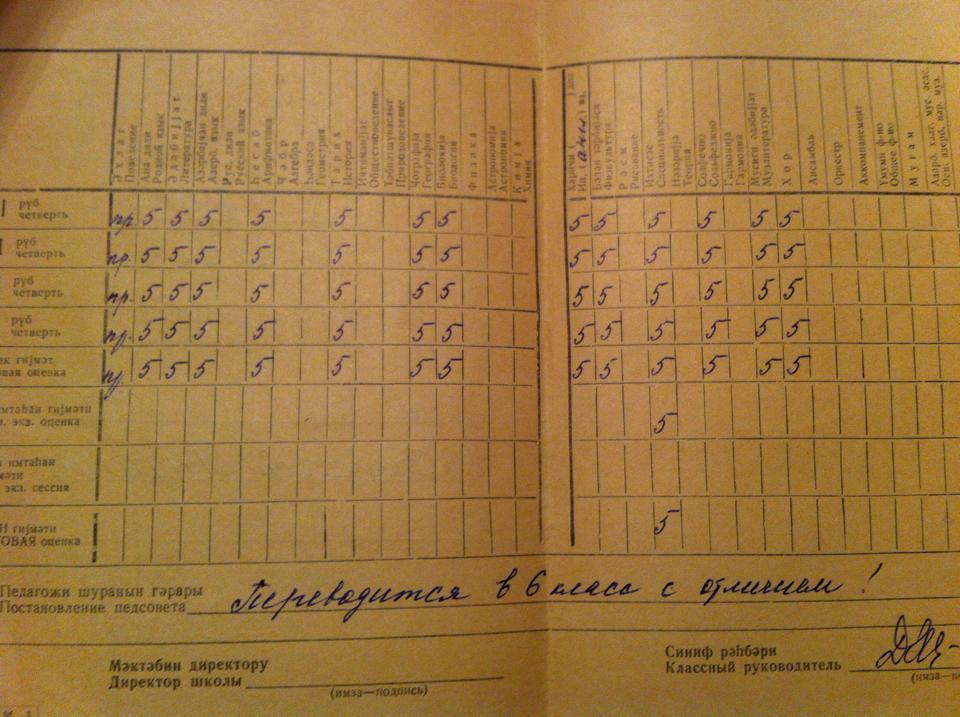 Әхлаг
Поведение
Ана дили
Родной язык
Әдәбијјат
Литература
Азәрбајҹан дили
Азерб. язык
Рус дили
Русский язык
Һесаб
Арифметика
Ҹәбр
Алгебра
Һәндәсә
Геометрия
Тарих
История
Иҹтимаијјат
Обществоведение
Тәбиәтшүнаслыг
Природоведение
Ҹоғрафија
География
Биолокија
Биология
Физика
Астрономија
Астрономия
Кимја
Химия
Хариҹи ( ) дил
Ин. ( англ ) яз.
Бәдән тәрбијәси
Физкультура
Рәсм
Рисование
Ихтисас
Специальность
Нәзәријјә
Теория
Солфеҹио
Сольфеджио
Гармонија
Гармония
Мусиги әдәбијјат
Музлитература
Хор
Ансамбль
Оркестр
Аккомпанемент
Үмуми ф-но
Общее ф-но
Мугам
Азәрб. халг. мус. әсас.
Осн. азерб. нар. муз.
I рүб
четверть пр. 5 5 5 5 5 5 5 5 5 5 5 5 5
рүб
четверть пр. 5 5 5 5 5 5 5 5 5 5 5 5 5
рүб
четверть пр. 5 5 5 5 5 5 5 5 5 5 5 5 5
рүб
четверть пр. 5 5 5 5 5 5 5 5 5 5 5 5 5
к гијмәт
вая оценка пр. 5 5 5 5 5 5 5 5 5 5 5 5 5
мтаһан гијмәти
экз. оценка 5
имтаһан
мәти
экз. сессия
Н гијмәти
ГОВАЯ оценка 5
Педагожи шуранын гәрары
Постановление педсовета Переводится в 6 класс с отличием!
Мәктәбин директору
Директор школы
(имза—подпись)
Синиф рәһбәри
Классный руководитель
(имза—по